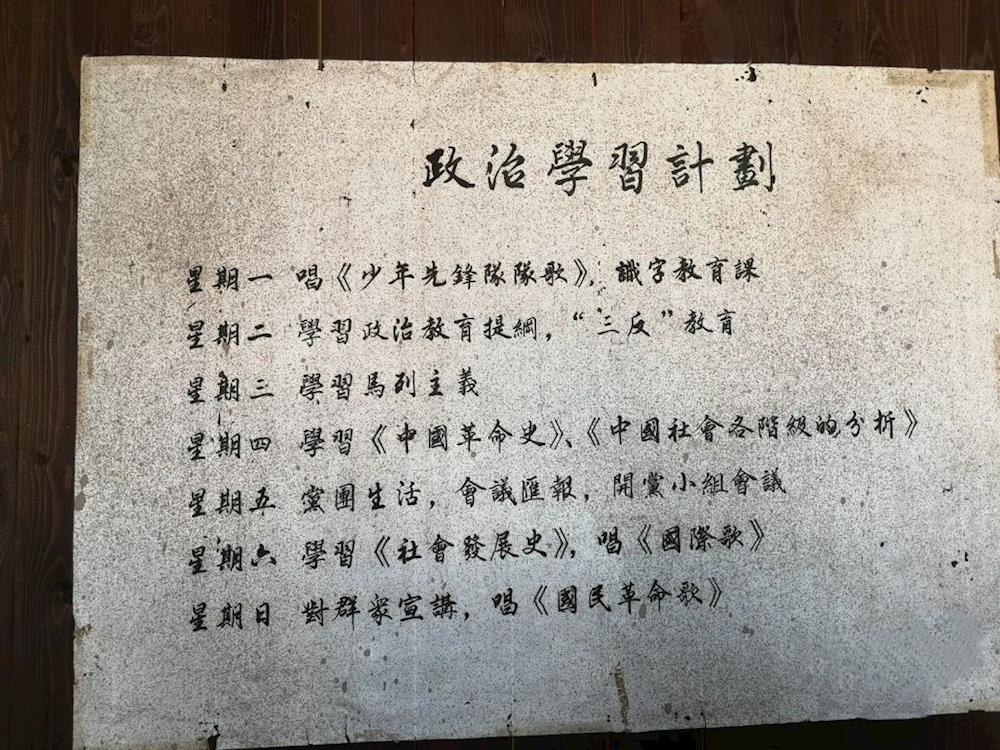 政治學習計劃
星期一 唱《少年先鋒隊隊歌》，識字教育課
星期二 學習政治教育提綱，“三反”教育
星期三 學習馬列主義
星期四 學習《中國革命史》、《中國社會各階級的分折》
星期五 黨團生活，會議匯報，開黨小組會議
星期六 學習《社會發展史》，唱《國際歌》
星期日 對群衆宣講，唱《國民革命歌》